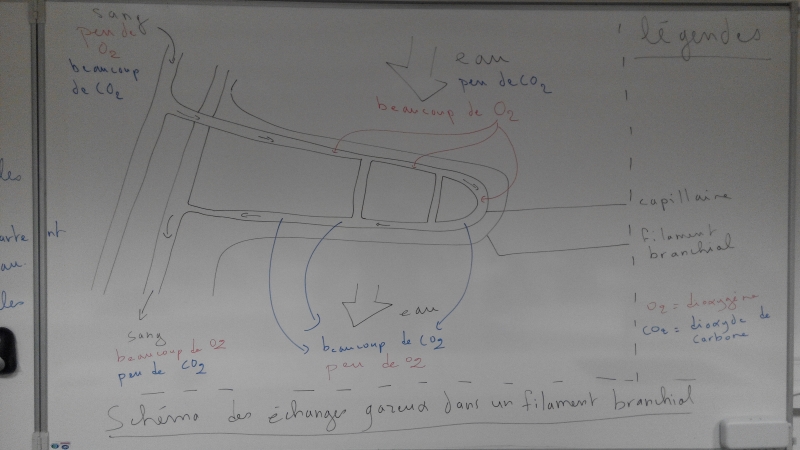 sang
peu de
O2
beaucoup
de CO2
eau
peu de CO2
beaucoup de O2
légendes
capillaire
filament
branchial
O2 = dioxygène
CO2 = dioxyde de
carbone
eau
beaucoup de CO2
peu de O2
sang
beaucoup de O2
peu de CO2
Schéma des échanges gazeux dans un filament branchial
les
au.
les